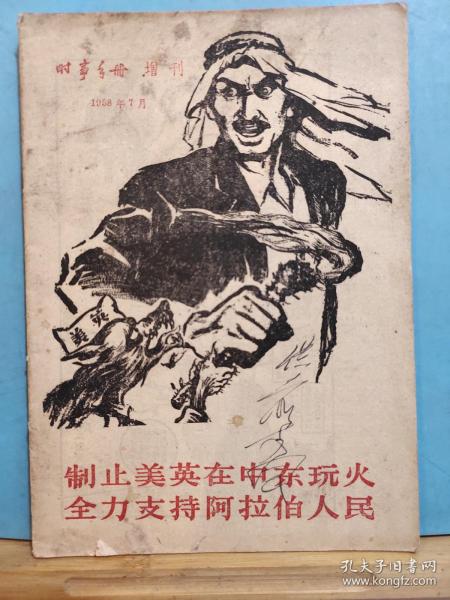 时事手册 增刊
1958年7月
美英
制止美英在中东玩火
全力支持阿拉伯人民
孔夫子旧书网
www.kongfz.com